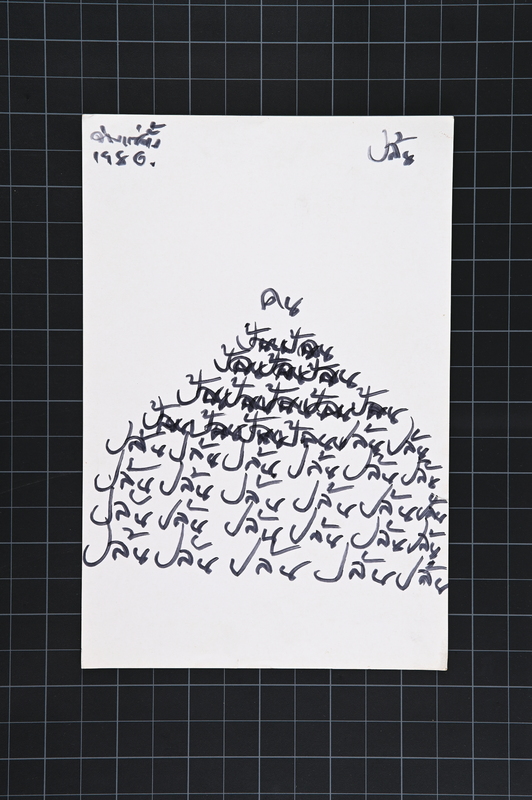 1980.
ปล้น
คน
ปล้นปล้น
ปล้นปล้นปล้น
ปล้นปล้นปล้นปล้นปล้น
ปล้น ปล้นปล้นปล้น ปล้น ปล้น
ปล้น ปล้น ปล้น ปล้น ปล้น ปล้น
ปล้น ปล้น ปล้น ปล้น ปล้น ปล้น
ปล้น ปล้น ปล้น ปล้น ปล้น ปล้น
ปล้น ปล้น ปล้น ปล้น ปล้น